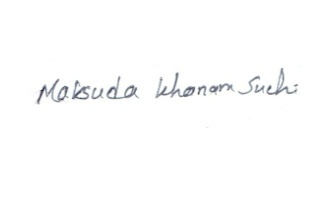 Maksuda Khanam Suchi